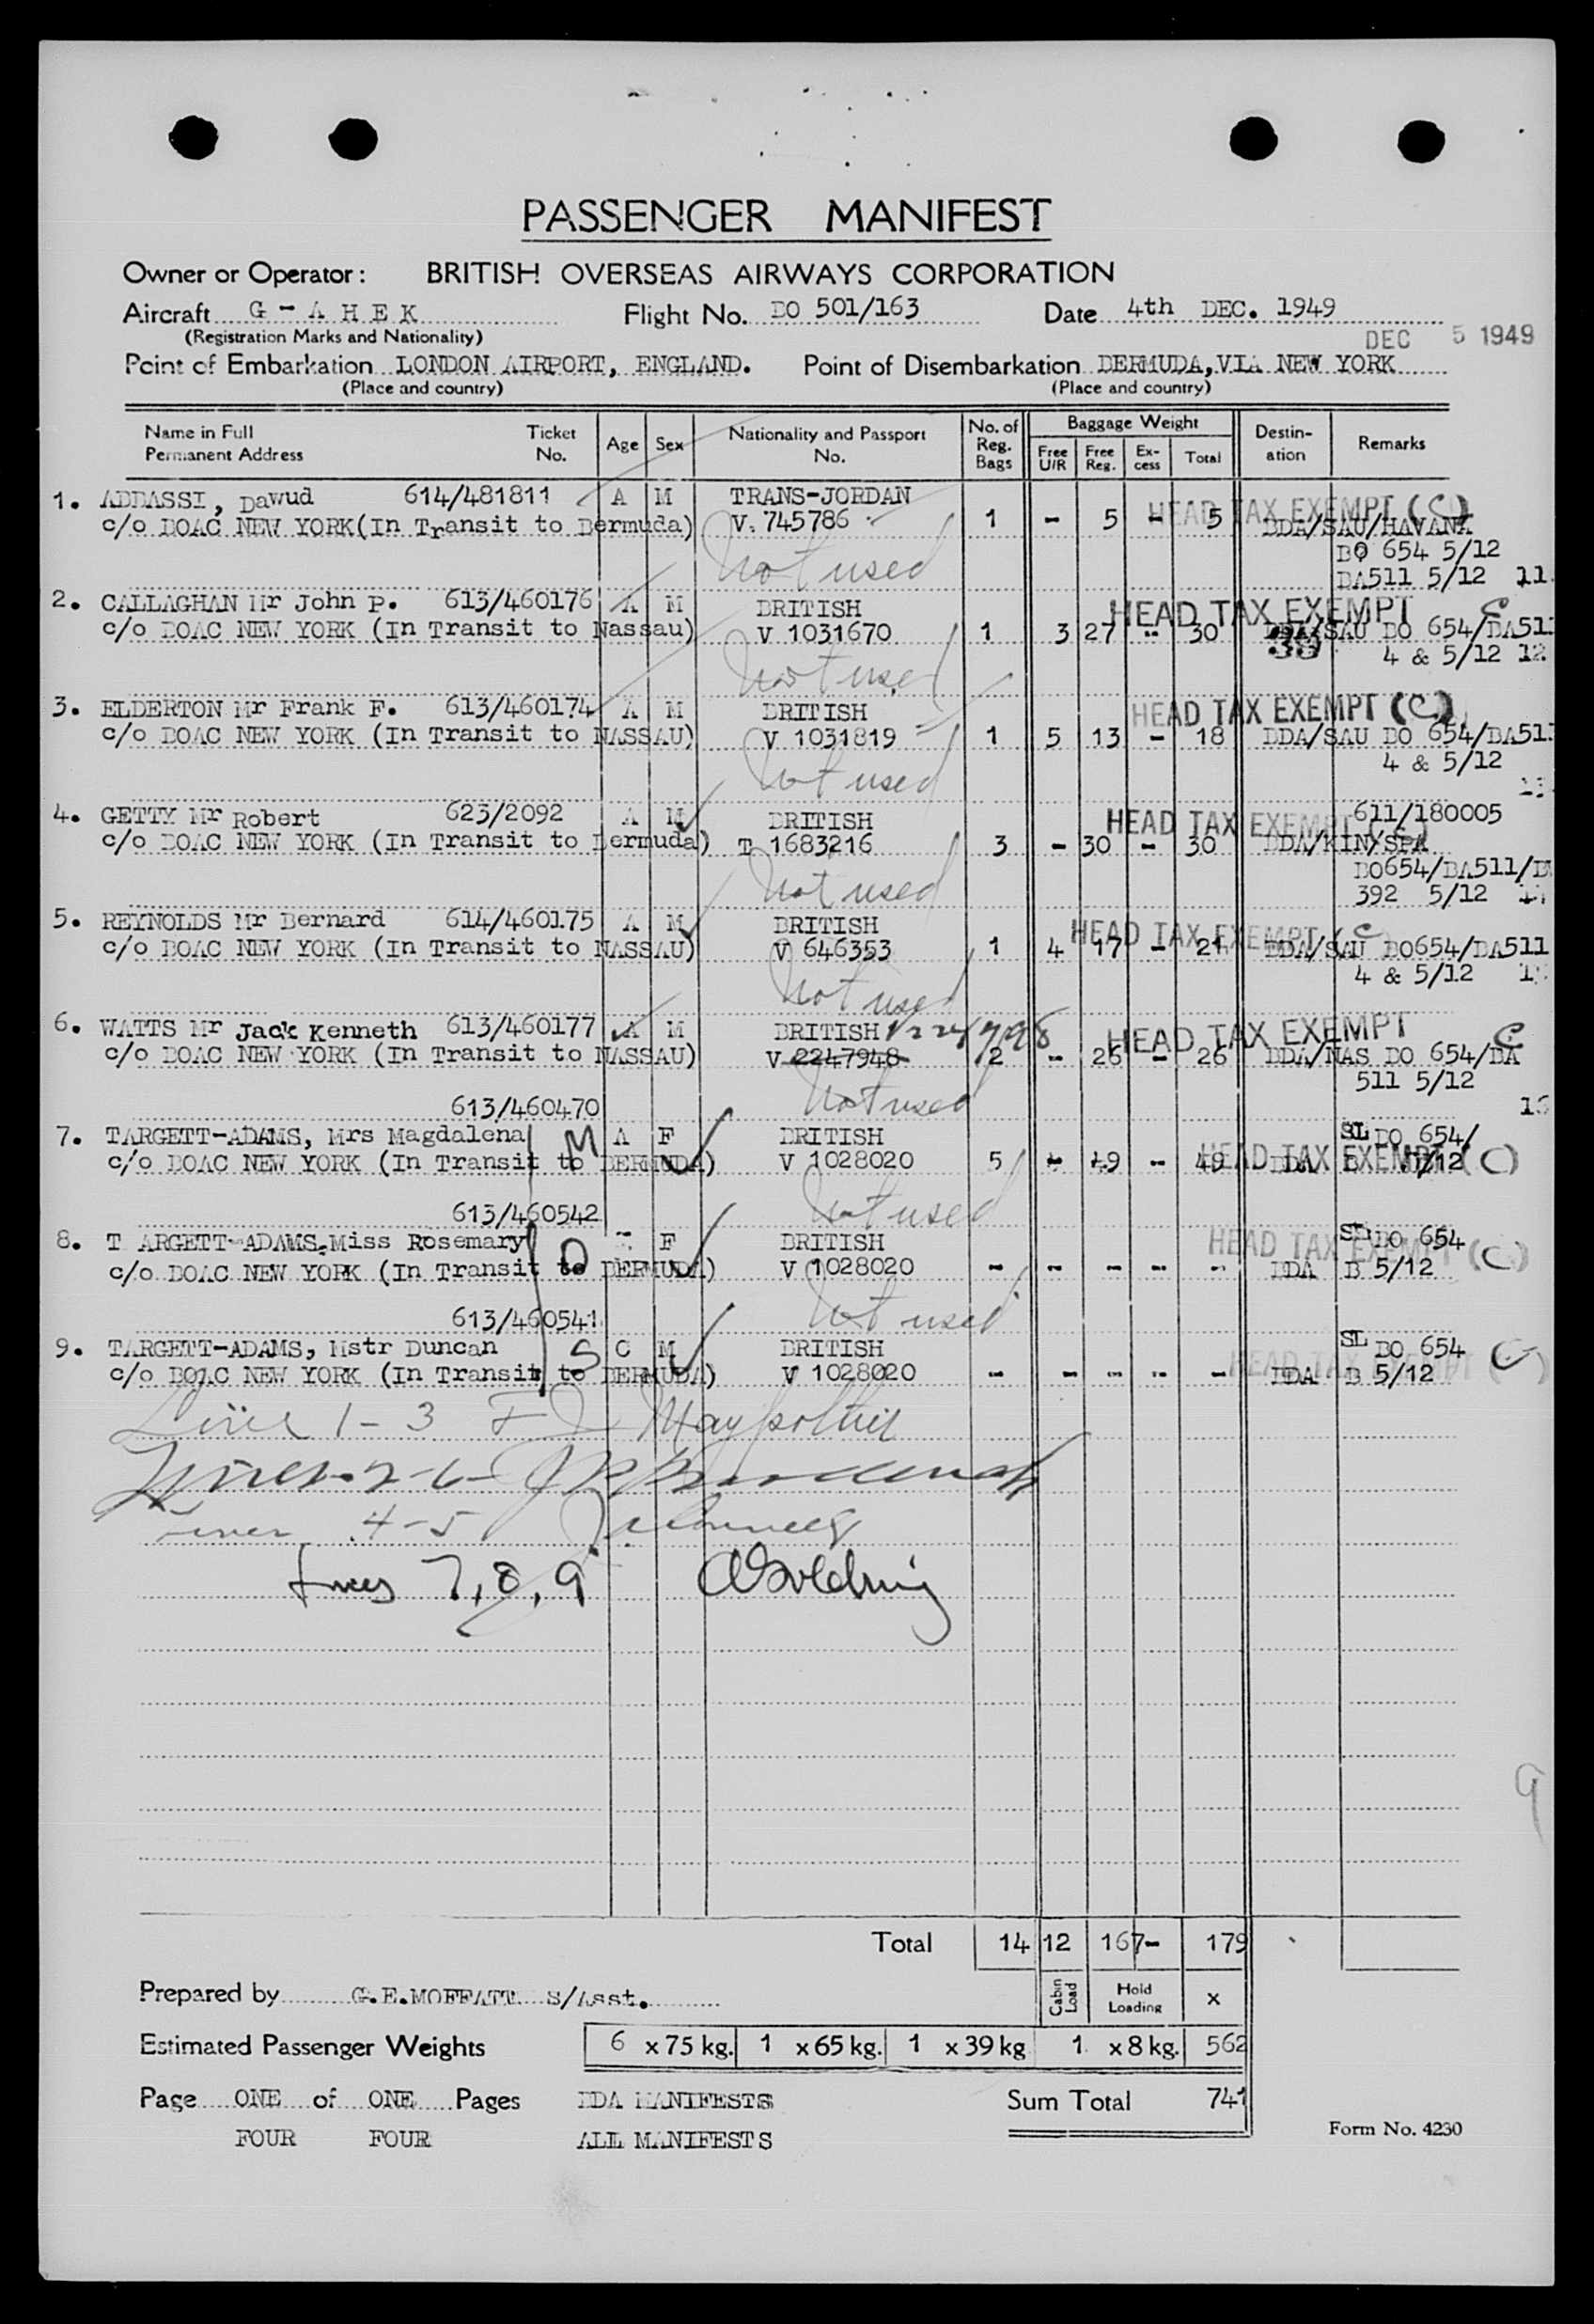 PASSENGER MANIFEST
Owner or Operator: BRITISH OVERSEAS AIRWAYS CORPORATION
Aircraft G - A H E K Flight No. BO 501/163 Date 4th DEC. 1949
(Registration Marks and Nationality) DEC 5 1949
Point of Embarkation LONDON AIRPORT, ENGLAND. Point of Disembarkation BERMUDA, VIA NEW YORK
(Place and country) (Place and country)
Name in Full Ticket Age Sex Nationality and Passport No. of Baggage Weight Destin- Remarks
Permanent Address No. No. Reg. Bags Free U/R Free Reg. Ex-cess Total ation
1. ABBASSI, Dawud 614/481811 A M TRANS-JORDAN HEAD TAX EXEMPT (C)
c/o BOAC NEW YORK (In Transit to Bermuda) V. 745786 1 - 5 - 5 BDA/SAU/HAVANA
Not used BO 654 5/12
BA511 5/12 11.
2. CALLAGHAN Mr John P. 613/460176 A M BRITISH HEAD TAX EXEMPT C
c/o BOAC NEW YORK (In Transit to Nassau) V 1031670 1 3 27 - 30 SAU BO 654/BA511
Not used 4 & 5/12 12.
3. ELDERTON Mr Frank F. 613/460174 A M BRITISH HEAD TAX EXEMPT (C)
c/o BOAC NEW YORK (In Transit to NASSAU) V 1031819 1 5 13 - 18 BDA/SAU BO 654/BA511
Not used 4 & 5/12
4. GETTY Mr Robert 623/2092 A M BRITISH HEAD TAX EXEMPT (C) 611/180005
c/o BOAC NEW YORK (In Transit to Bermuda) T 1683216 3 - 30 - 30 BDA/KIN/SPA
Not used BO654/BA511/B
392 5/12
5. REYNOLDS Mr Bernard 614/460175 A M BRITISH HEAD TAX EXEMPT C
c/o BOAC NEW YORK (In Transit to NASSAU) V 646353 1 4 17 - 21 BDA/SAU BO654/BA511
Not used 4 & 5/12
6. WATTS Mr Jack Kenneth 613/460177 A M BRITISH HEAD TAX EXEMPT C
c/o BOAC NEW YORK (In Transit to NASSAU) V 2247948 2 - 26 - 26 BDA/NAS BO 654/BA
511 5/12
613/460470 Not used
7. TARGETT-ADAMS, Mrs Magdalena M A F BRITISH SL BO 654/
c/o BOAC NEW YORK (In Transit to BERMUDA) V 1028020 5 - 49 - 49 HEAD TAX EXEMPT (C) BDA B 5/12
613/460542 Not used
8. T ARGETT-ADAMS, Miss Rosemary D F BRITISH HEAD TAX EXEMPT (C) SL BO 654
c/o BOAC NEW YORK (In Transit to BERMUDA) V 1028020 - - - - - BDA B 5/12
613/460541 Not used
9. TARGETT-ADAMS, Mstr Duncan S C M BRITISH SL BO 654
c/o BOAC NEW YORK (In Transit to BERMUDA) V 1028020 - - - - - HEAD TAX EXEMPT (C) BDA B 5/12
Line 1-3
4-5
Lines 7, 8, 9
9
Total 14 12 167 - 179
Prepared by G.E.MOFFATT S/Asst. Cabin Load Hold Loading x
Estimated Passenger Weights 6 x 75 kg. 1 x 65 kg. 1 x 39 kg 1 x 8 kg. 562
Page ONE of ONE Pages BDA MANIFESTS Sum Total 741
FOUR FOUR ALL MANIFESTS Form No. 4230